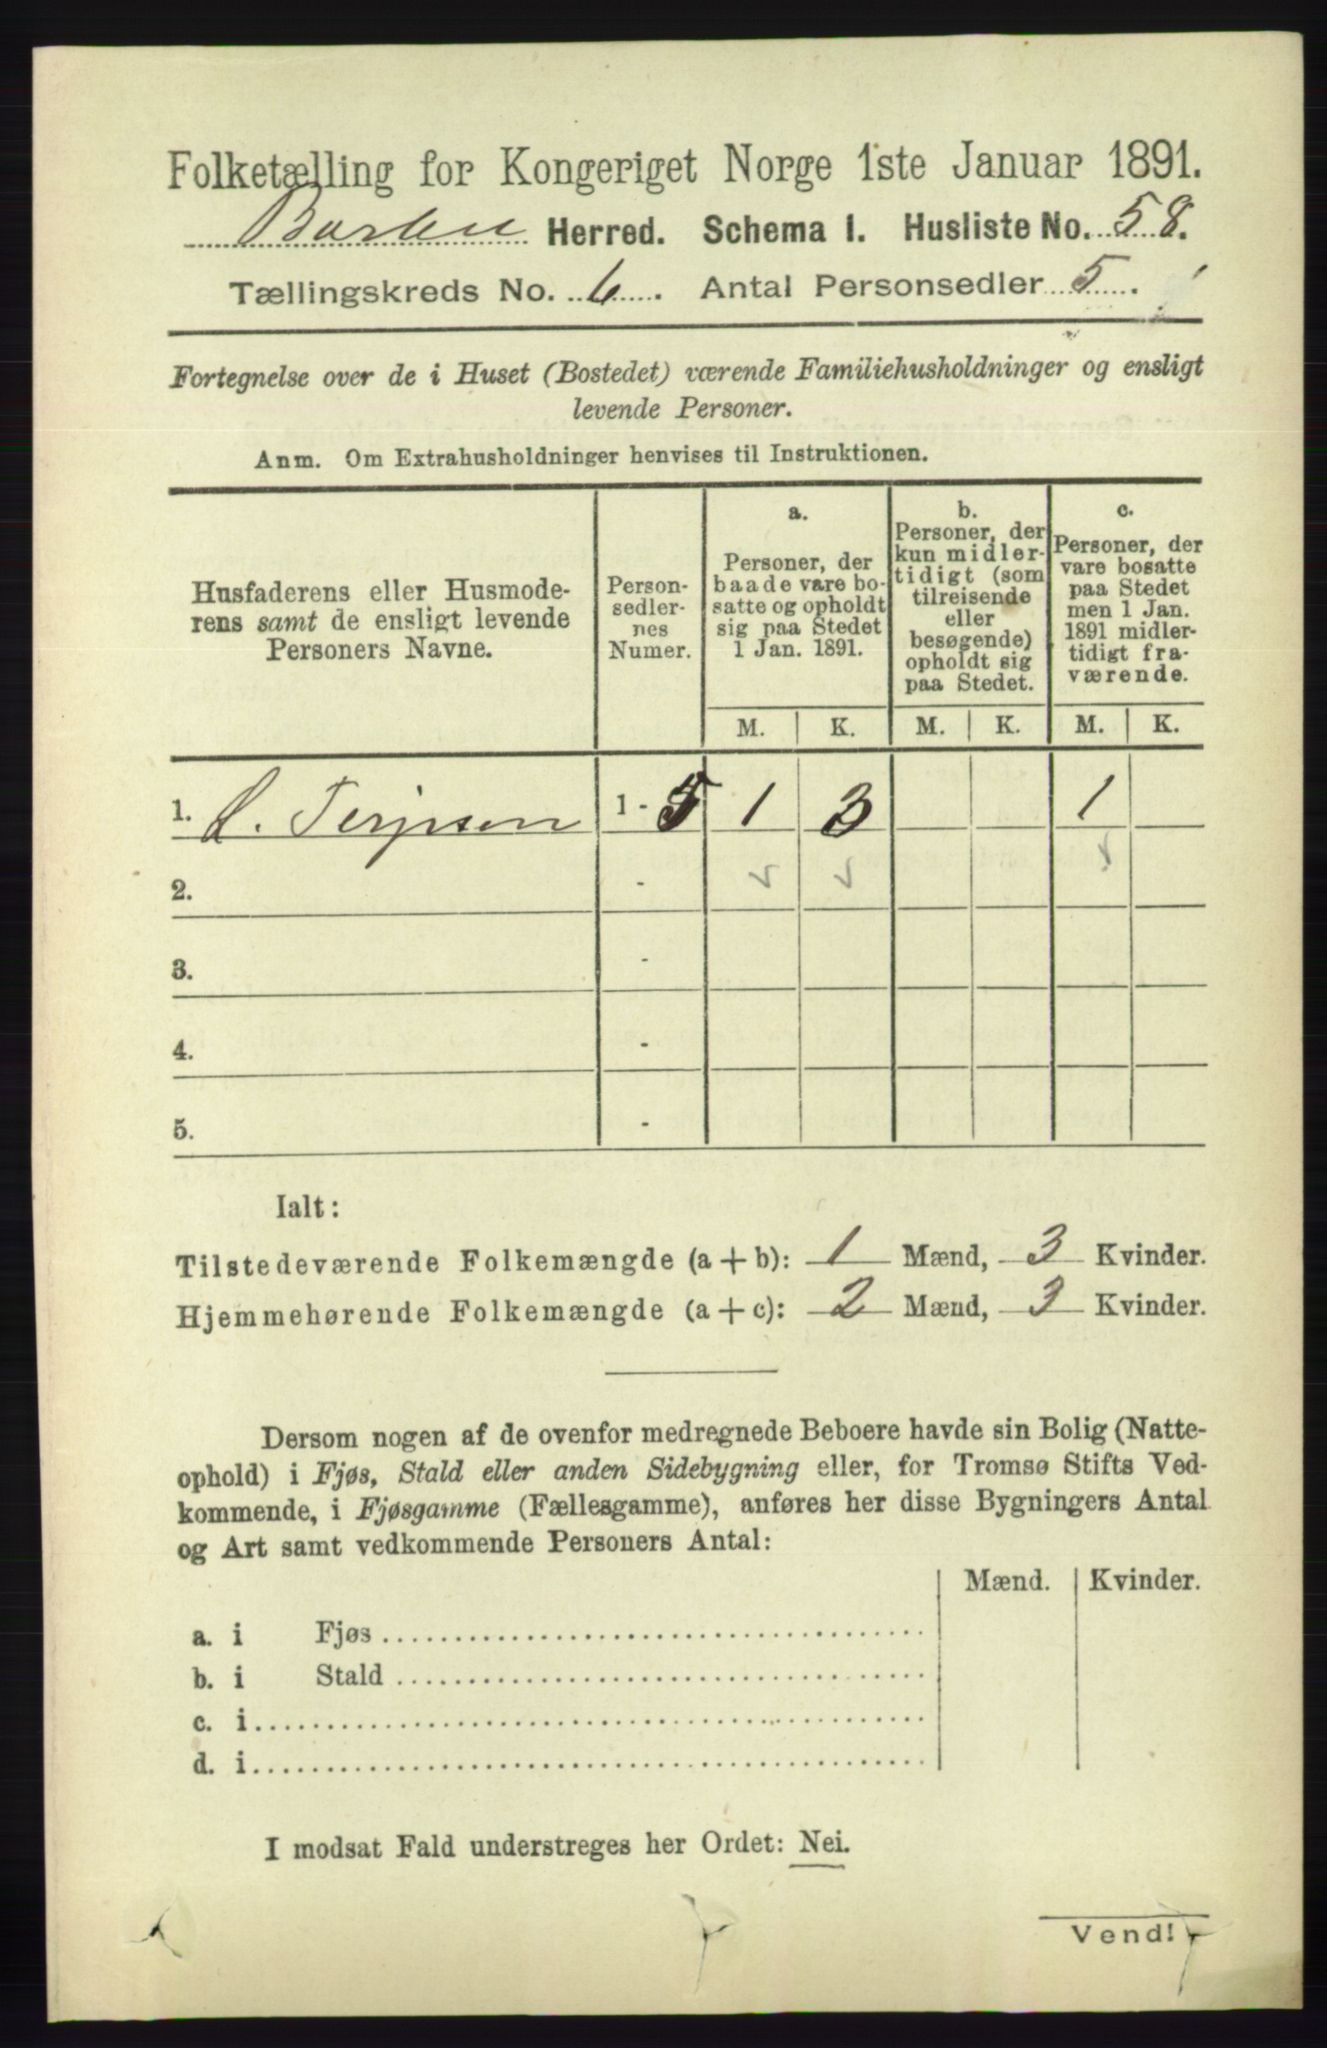 Folketælling for Kongeriget Norge 1ste Januar 1891.
Barbu Herred. Schema I. Husliste No. 58.
Tællingskreds No. 6. Antal Personsedler 5.
Fortegnelse over de i Huset (Bostedet) værende Familiehusholdninger og ensligt
levende Personer.
Anm. Om Extrahusholdninger henvises til Instruktionen.
Husfaderens eller Husmode-
rens samt de ensligt levende
Personers Navne.
Person-
sedler-
nes
Numer.
a.
Personer, der
baade vare bo-
satte og opholdt
sig paa Stedet
1 Jan. 1891.
b.
Personer, der
kun midler-
tidigt (som
tilreisende
eller
besøgende)
opholdt sig
paa Stedet.
c.
Personer, der
vare bosatte
paa Stedet
men 1 Jan.
1891 midler-
tidigt fra-
værende.
M. K. M. K. M. K.
1. Terjesen 1 - 5 1 3 1
2. -
3. -
4. -
5. -
Ialt:
Tilstedeværende Folkemængde (a + b): 1 Mænd, 3 Kvinder.
Hjemmehørende Folkemængde (a + c): 2 Mænd, 3 Kvinder.
Dersom nogen af de ovenfor medregnede Beboere havde sin Bolig (Natte-
ophold) i Fjøs, Stald eller anden Sidebygning eller, for Tromsø Stifts Ved-
kommende, i Fjøsgamme (Fællesgamme), anføres her disse Bygningers Antal
og Art samt vedkommende Personers Antal:
Mænd. Kvinder.
a. i Fjøs
b. i Stald
c. i
d. i
I modsat Fald understreges her Ordet: Nei.
Vend!